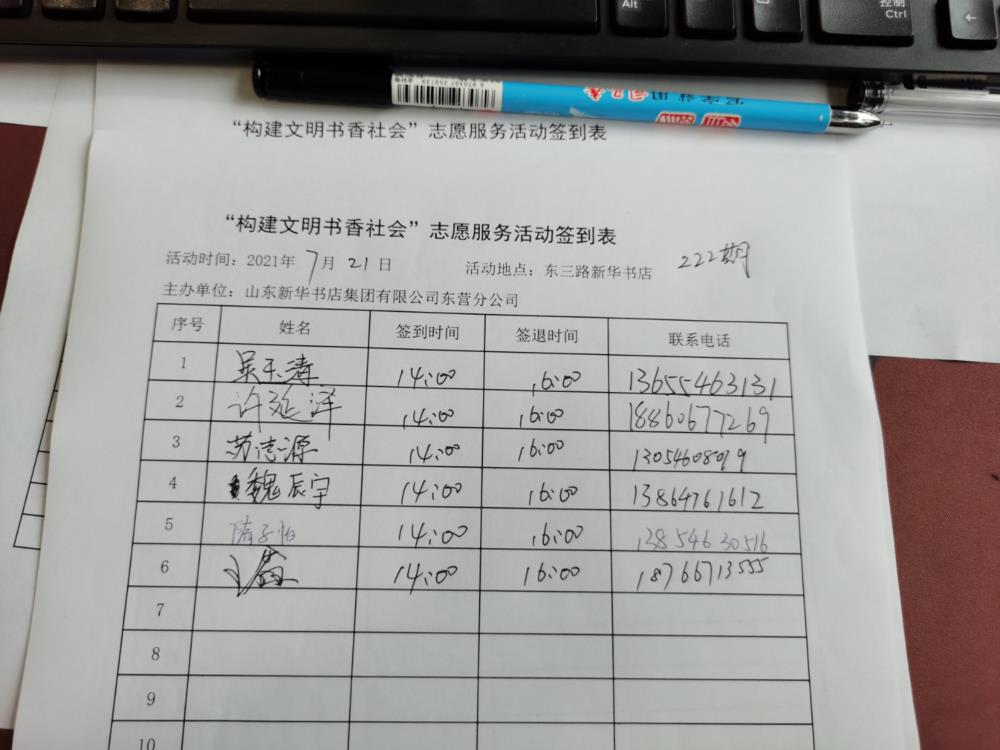 Alt
控制
Ctrl
“构建文明书香社会”志愿服务活动签到表
“构建文明书香社会”志愿服务活动签到表
活动时间：2021年 7月 21日 活动地点：东三路新华书店 222期
主办单位：山东新华书店集团有限公司东营分公司
序号 姓名 签到时间 签退时间 联系电话
1 吴玉涛 14:00 16:00 13655463131
2 许延洋 14:00 16:00 18860677269
3 苏志源 14:00 16:00 13054608019
4 魏辰宇 14:00 16:00 13864761612
5 隋子怡 14:00 16:00 13854630516
6 14:00 16:00 18766713555
7
8
9
10